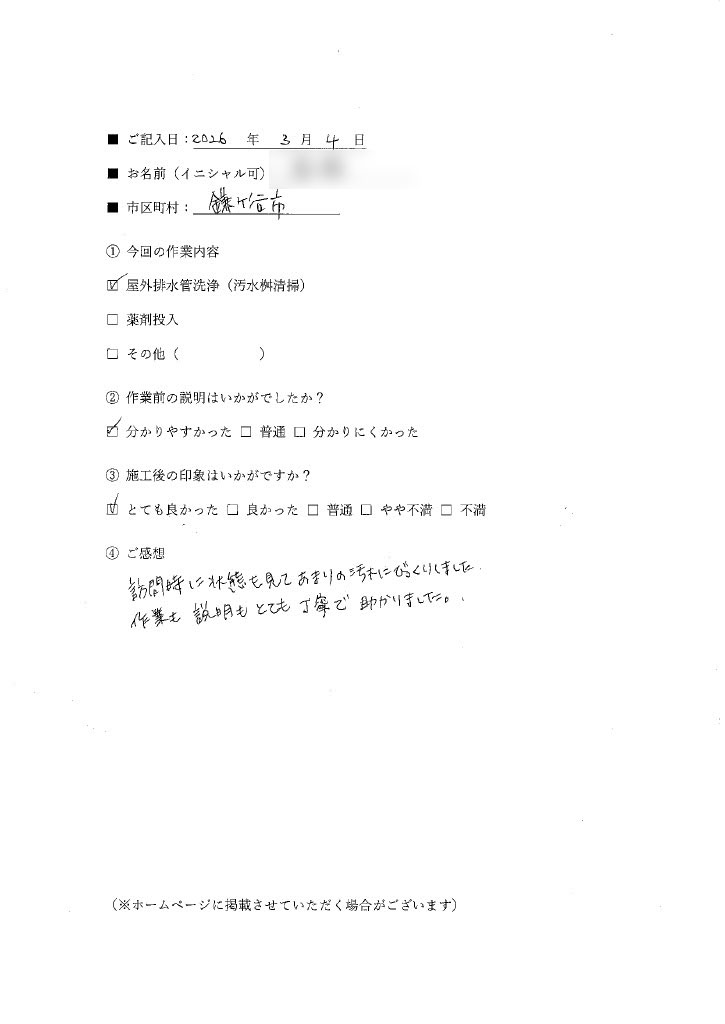 ■ ご記入日：2026 年 3 月 4 日
■ お名前（イニシャル可）
■ 市区町村： 鎌ケ谷市
① 今回の作業内容
☑ 屋外排水管洗浄（汚水桝清掃）
□ 薬剤投入
□ その他（　　　　　　）
② 作業前の説明はいかがでしたか？
☑ 分かりやすかった □ 普通 □ 分かりにくかった
③ 施工後の印象はいかがですか？
☑ とても良かった □ 良かった □ 普通 □ やや不満 □ 不満
④ ご感想
訪問時に状態を見てあまりの汚れにびっくりしました.
作業も説明もとても丁寧で助かりました。
（※ホームページに掲載させていただく場合がございます）